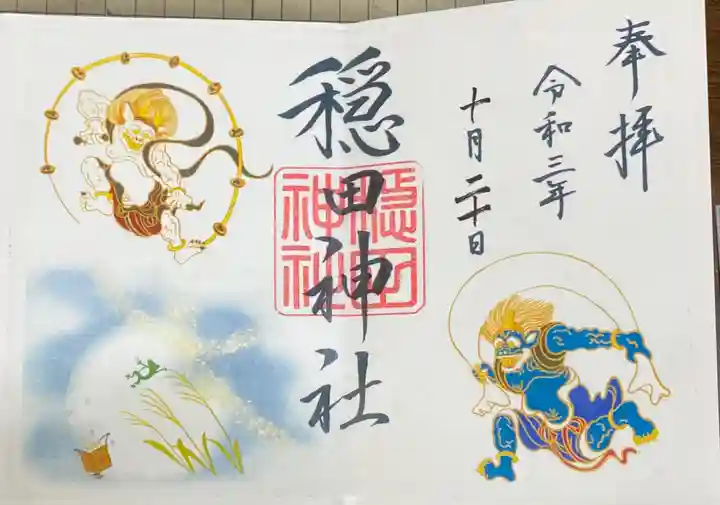 奉拝
令和三年
十月二十日
穏田神社
穏田神社